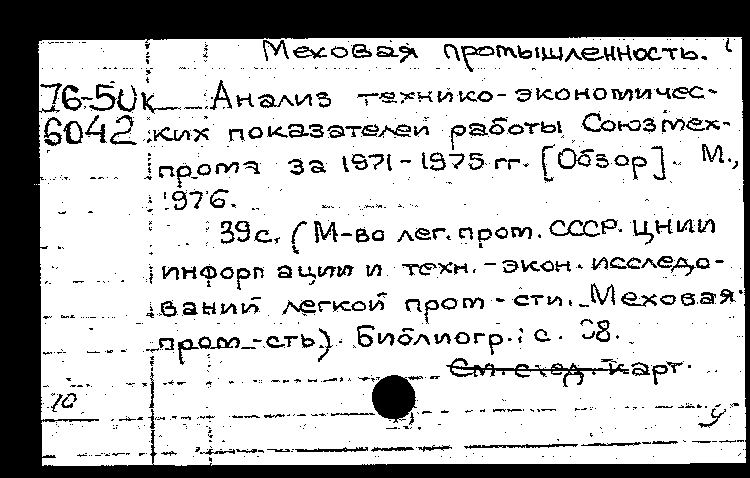 Меховая промышленность.
76-5Uк Анализ технико-экономичес-
6042 ких показателей работы Союзмех-
прома за 1971-1975 гг. [Обзор]. М.,
1976.
39с. (М-во лег. пром. СССР. ЦНИИ
информации и техн.-экон. исследо-
ваний легкой пром-сти. Меховая
пром-сть). Библиогр.: с. 38.
См. след. карт.
10